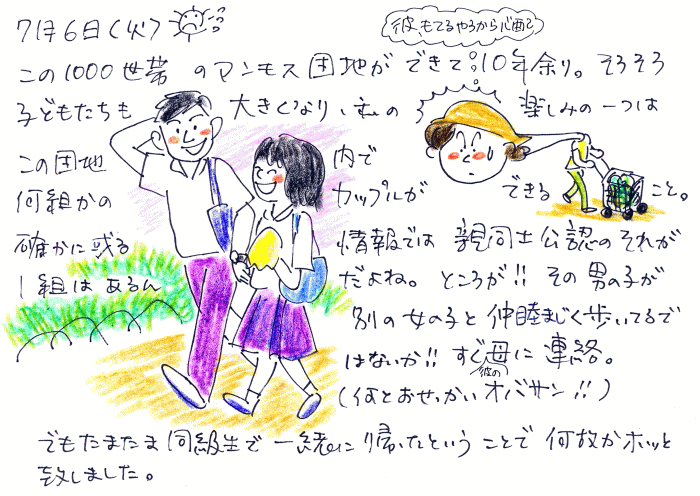 7月6日(火)
彼、もてるやろから心配で
この1000世帯のマンモス団地ができて10年余り。そろそろ
子どもたちも大きくなり、私の楽しみの一つは
この団地内で
何組かのカップルができること。
確かに或る情報では親同士公認のそれが
1組はあるんだよね。ところが!!その男の子が
別の女の子と仲睦まじく歩いてるで
はないか!!すぐ母に連絡。
彼の
(何とおせっかいオバサン!!)
でもたまたま同級生で一緒に帰ったということで何故かホッと
致しました。